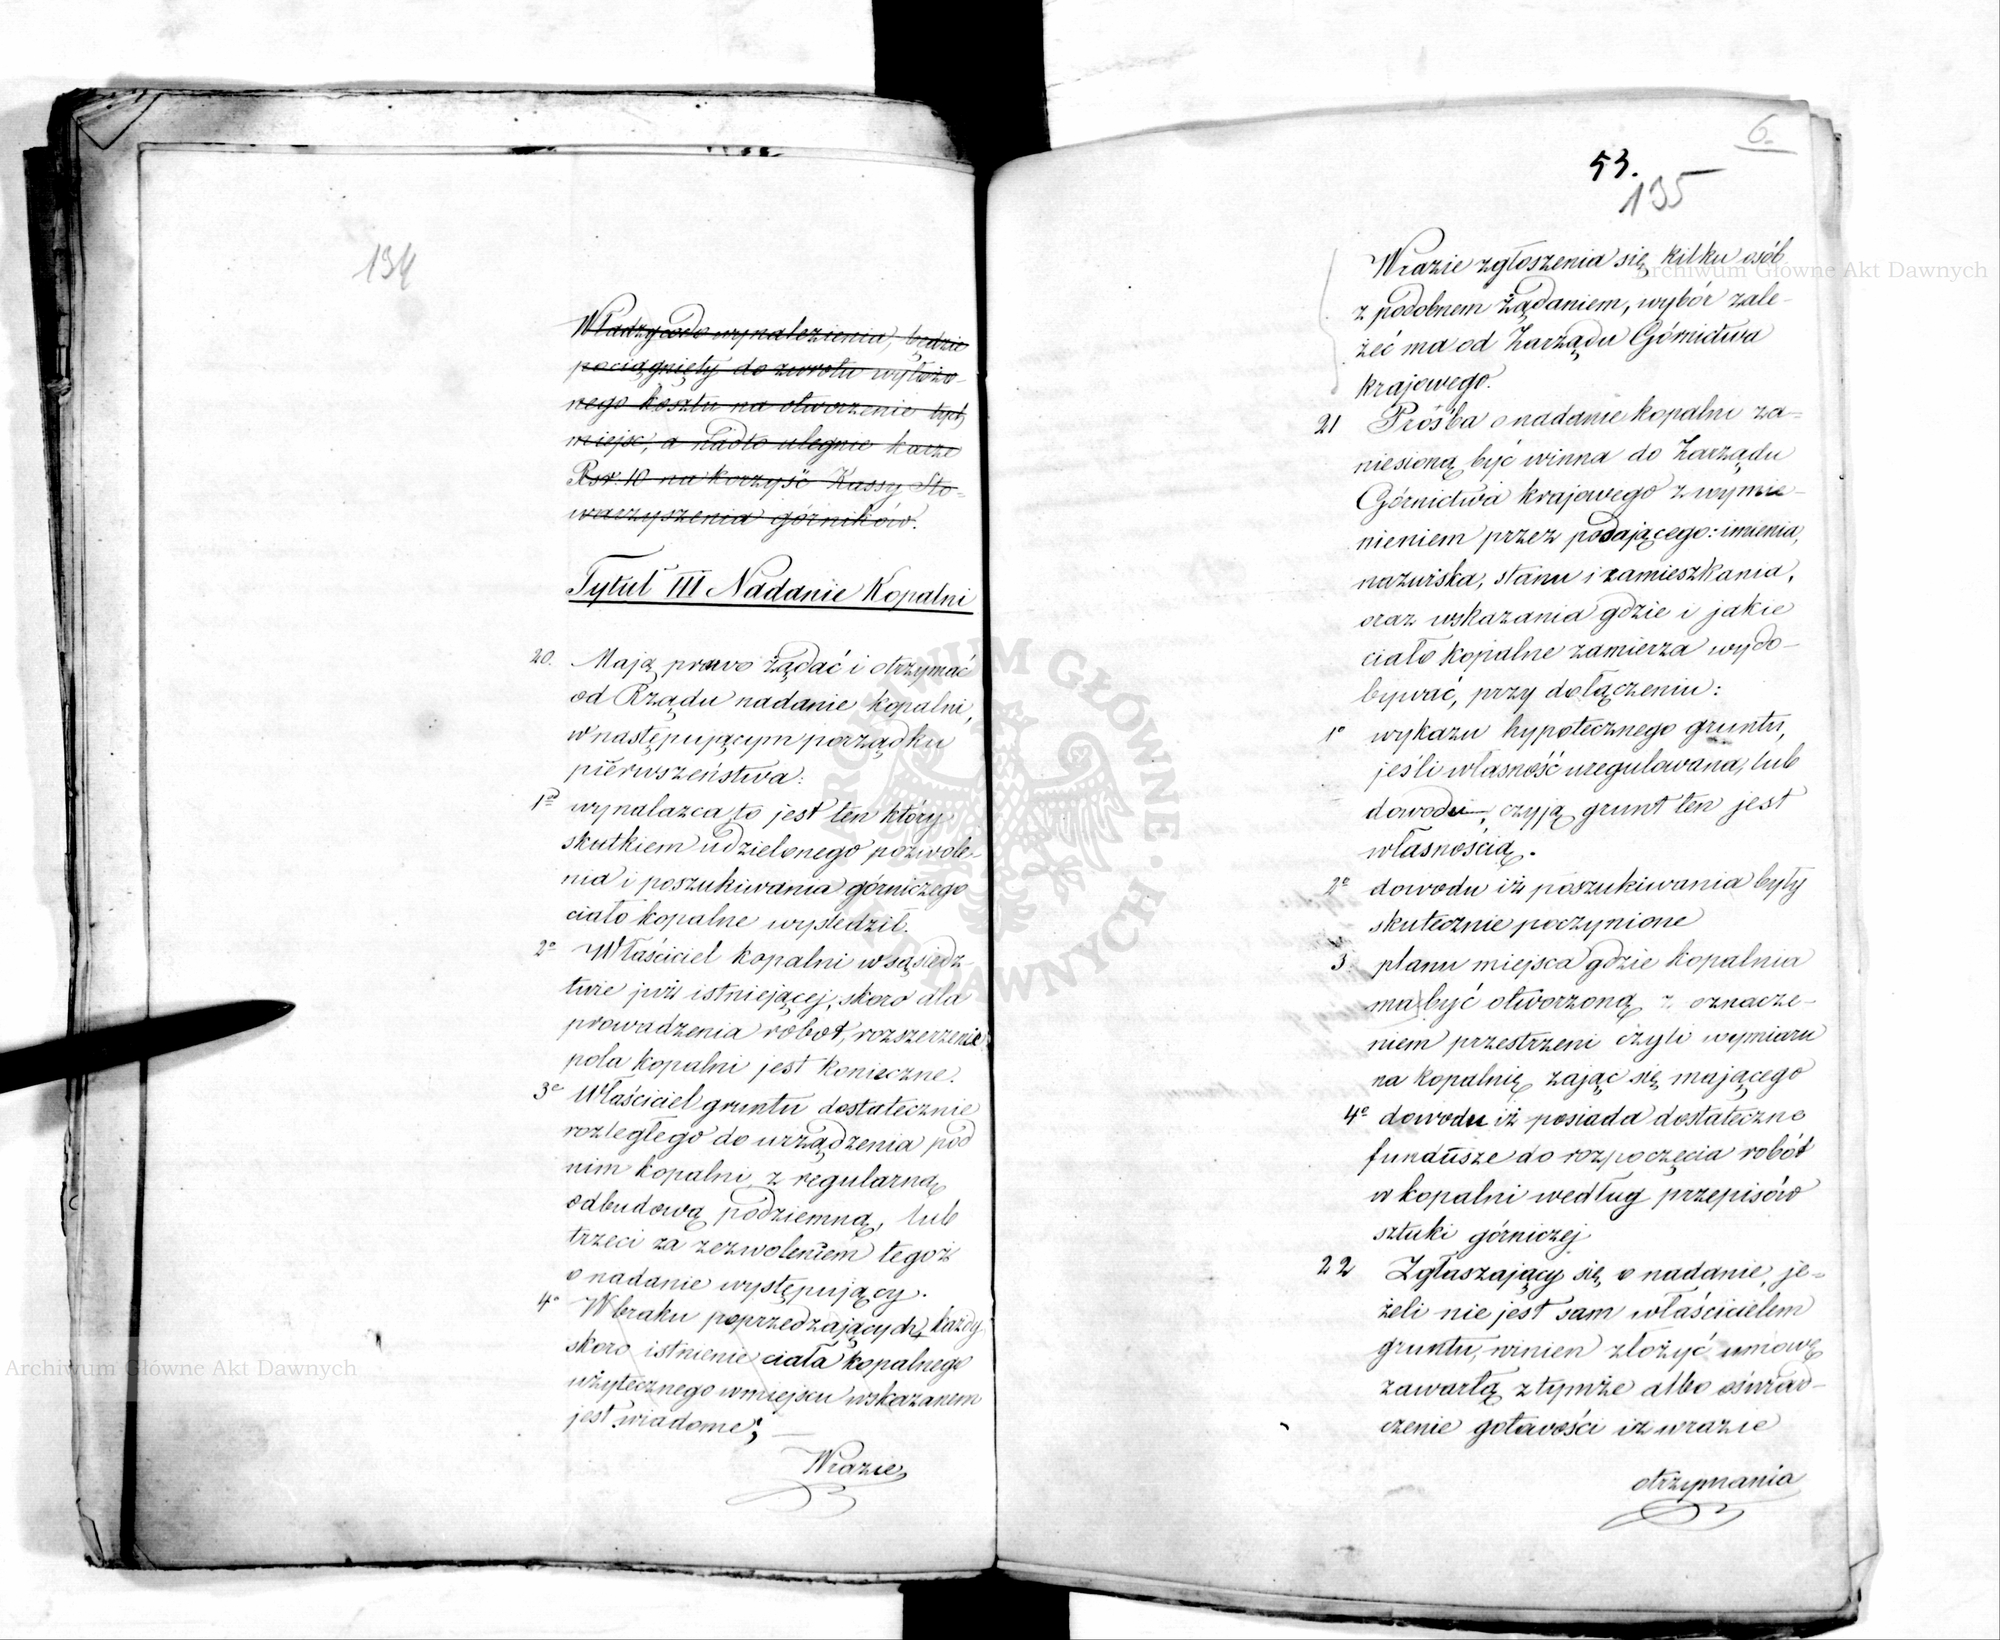 134
Władzy o do wynalezienia, będzie
pociągnięty do zwrotu wyłożo-
nego kosztu na otworzenie tych
miejsc, a nadto ulegnie karze
Rsr. 10 na korzyść Kassy Sto-
warzyszenia górników.
Tytuł III Nadanie Kopalni
20. Mają prawo żądać i otrzymać
od Rządu nadanie kopalni,
w następującym porządku
pierwszeństwa:
1º wynalazca to jest ten który
skutkiem udzielonego pozwole-
nia i poszukiwania górniczego
ciało kopalne wyśledził.
2º Właściciel kopalni w sąsiedz-
twie już istniejącej, skoro dla
prowadzenia robot, rozszerzenie
pola kopalni jest konieczne.
3º Właściciel gruntu dostatecznie
rozległego do urządzenia pod
nim kopalni z regularną
odbudową podziemną, lub
trzeci za zezwoleniem tegoż
o nadanie występujący.
4º W braku poprzedzających, każdy
skoro istnienie ciała kopalnego
użytecznego w miejscu wskazanem
jest wiadome;
Wrazie
6.
53.
135
Wrazie zgłoszenia się kilku osób
z podobnem żądaniem, wybór zale-
żeć ma od Zarządu Górnictwa
krajowego.
21 Prośba o nadanie kopalni za-
niesioną być winna do Zarządu
Górnictwa krajowego z wymie-
nieniem przez podającego: imienia,
nazwiska, stanu i zamieszkania,
oraz wskazania gdzie i jakie
ciało kopalne zamierza wydo-
bywać, przy dołączeniu:
1º wykazu hypotecznego gruntu,
jeśli własność uregulowana, lub
dowodu, czyją grunt ten jest
własnością.
2º dowodu iż poszukiwania były
skutecznie poczynione
3. planu miejsca gdzie kopalnia
ma być otworzoną z oznacze-
niem przestrzeni czyli wymiaru
na kopalnię zająć się mającego
4º dowodu iż posiada dostateczne
fundusze do rozpoczęcia robót
w kopalni według przepisów
sztuki górniczej
22 Zgłaszający się o nadanie, je-
żeli nie jest sam właścicielem
gruntu, winien złożyć umowę
zawartą z tymże albo oświad-
czenie gotowości iż wrazie
otrzymania
Archiwum Główne Akt Dawnych
Archiwum Główne Akt Dawnych
ARCHIWUM GŁÓWNE AKT DAWNYCH